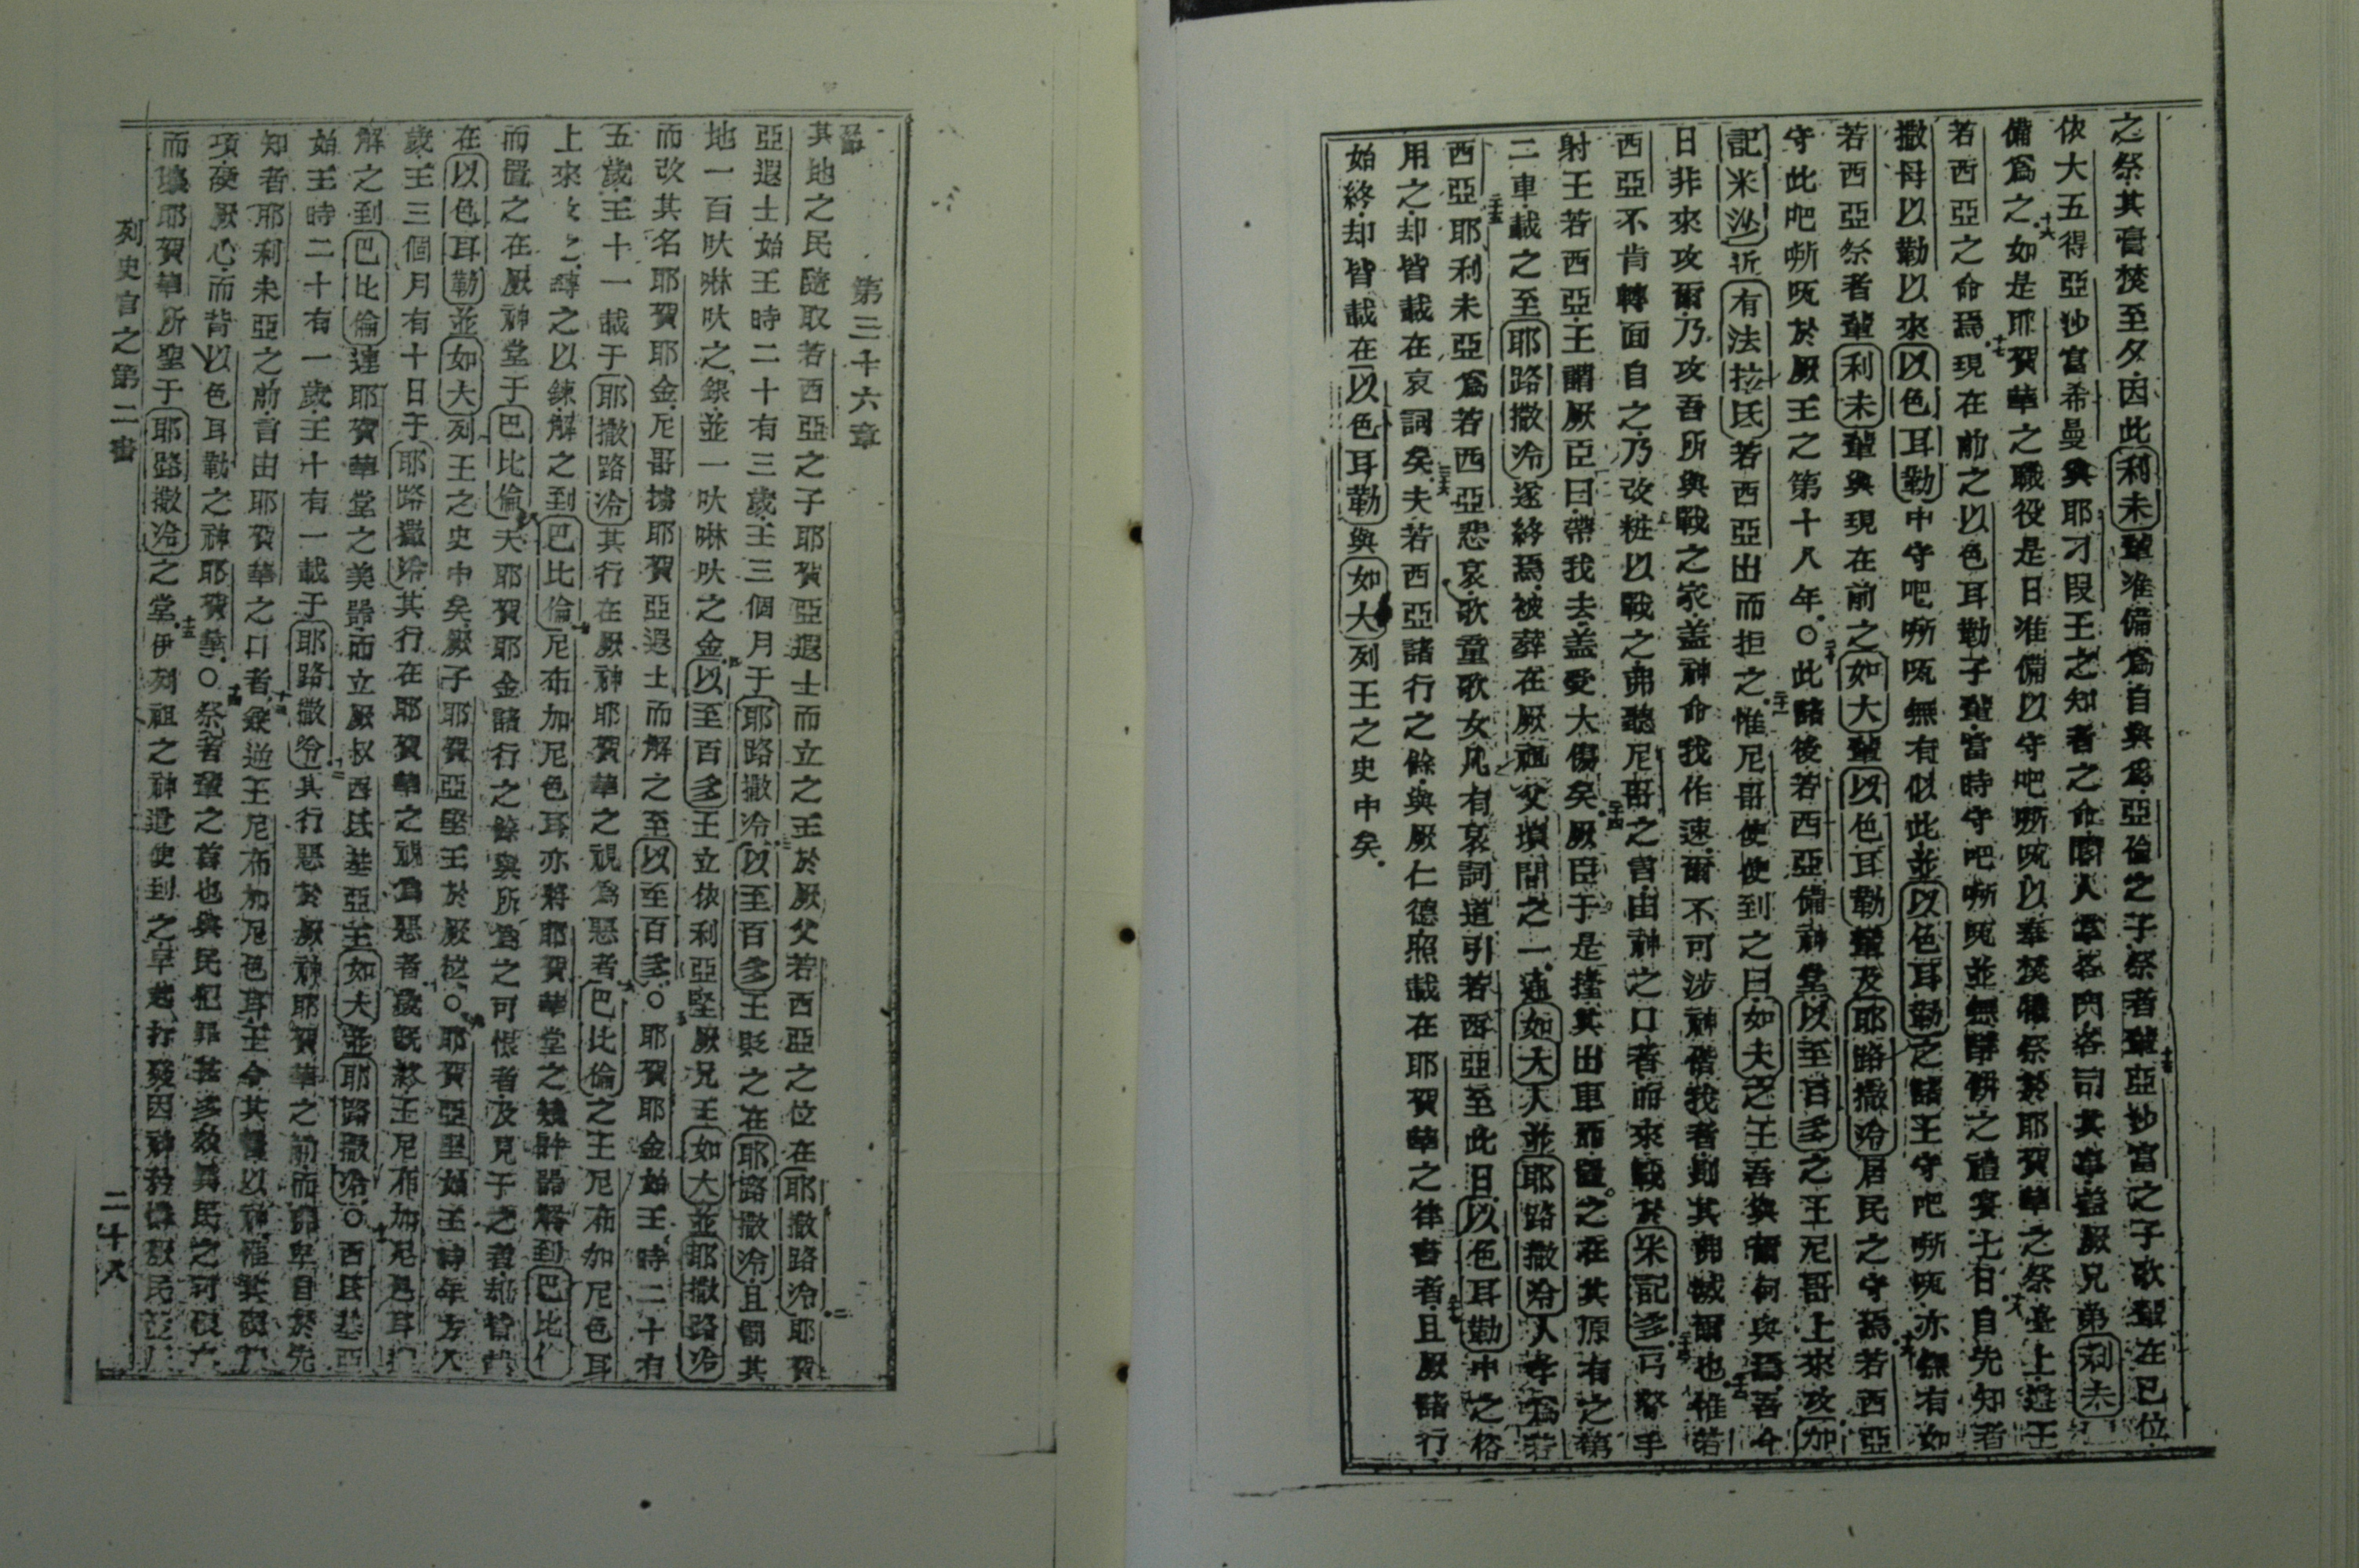 之祭其膏焚至夕因此利未輩准備爲自與爲亞倫之子祭者輩亞抄富之子歌輩在已位
依大五得亞抄富希曼與耶才段王之知者之命閽人輩各門各司其事蓋厥兄弟利未
備爲之如是耶賀華之職役是日准備以守吧嘶呱以奉焚獻祭於耶賀華之祭臺上遵王
若西亞之命焉現在前之以色耳勒子輩當時守吧嘶呱並無酵餅之禮宴七日自先知者
撒母以勒以來以色耳勒中守吧嘶呱無有似此並以色耳勒之諸王守吧嘶呱亦無有如
若西亞祭者輩利未輩與現在前之如大輩以色耳勒輩及耶路撒冷居民之守焉若西亞
守此吧嘶呱於厥王之第十八年○此諸後若西亞備神堂以至百多之王尼哥上來攻加
記米沙近有法拉氐若西亞出而拒之惟尼哥使使到之曰如大之王吾與爾何與焉吾今
日非來攻爾乃攻吾所與戰之家蓋神命我作速爾不可涉神偕我者則其弗滅爾也惟若
西亞不肯轉面自之乃改粧以戰之弗聽尼哥之言由神之口者而來戰於米記多弓鏧手
射王若西亞王謂厥臣曰帶我去蓋受大傷矣厥臣于是擡其出車而置之在其原有之第
二車載之至耶路撒冷遂終焉被葬在厥祖父墳間之一連如大人並耶路撒冷人孝爲若
西亞耶利未亞爲若西亞悲哀歌童歌女凡有哀詞道引若西亞至此日以色耳勒中之俗
用之却皆載在哀詞矣夫若西亞諸行之餘與厥仁德照載在耶賀華之律書者且厥諸行
始終却皆載在以色耳勒與如大列王之史中矣
第三十六章
其地之民隨取若西亞之子耶賀亞遐士而立之王於厥父若西亞之位在耶撒路冷耶賀
亞遐士始王時二十有三歲王三個月于耶路撒冷以至百多王貶之在耶路撒冷且罰其
地一百吠啉吠之銀並一吠啉吠之金以至百多王立依利亞堅厥兄王如大並耶撒路冷
而改其名耶賀耶金尼哥擄耶賀亞遐士而解之至以至百多○耶賀耶金始王時二十有
五歲王十一載于耶撒路冷其行在厥神耶賀華之視爲惡者巴比倫之王尼布加尼色耳
上來攻之縛之以鍊解之到巴比倫尼布加尼色耳亦將耶賀華堂之幾許器解到巴比倫
而置之在厥神堂于巴比倫夫耶賀耶金諸行之餘與所爲之可恨者及見于之者却皆載
在以色耳勒並如大列王之史中矣厥子耶賀亞堅王於厥位○耶賀亞堅始王時年方八
歲王三個月有十日于耶路撒冷其行在耶賀華之視爲惡者歲旣終王尼布加尼色耳
解之到巴比倫連耶賀華堂之美器而立厥叔西氐基亞王如大並耶路撒冷○西氐基亞
始王時二十有一歲王十有一載于耶路撒冷其行惡於厥神耶賀華之前而弗卑自於先
知者耶利未亞之前言由耶賀華之口者叛逆王尼布加尼色耳王令其誓以神
項硬厥心而背以色耳勒之神耶賀華○祭者輩之首也與民犯罪甚多效異民之可恨
而壞耶賀華所聖于耶路撒冷之堂伊列祖之神遣使到之早起打發因神矜憐厥民
列史官之第二書
二十八